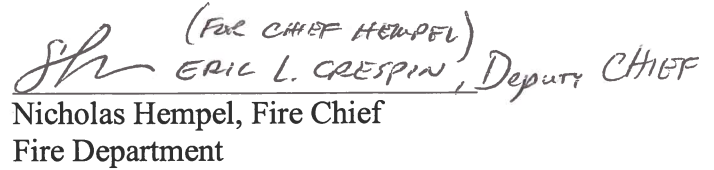 (FOR CHIEF HEMPEL)
ERIC L. CRESPIN, Deputy CHIEF
Nicholas Hempel, Fire Chief
Fire Department